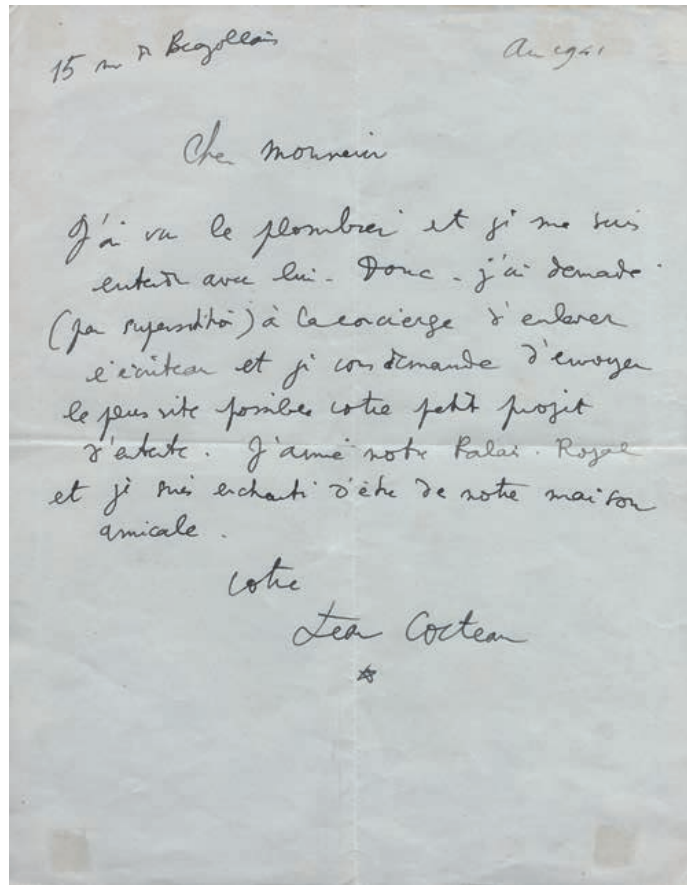 15 rue de Beaujolais
Cher Monsieur
J'ai vu le plombier et je me suis
entendu avec lui. Donc - j'ai demandé
(par superstition) à la concierge d'enlever
l'écriteau et je vous demande d'envoyer
le plus vite possible votre petit projet
d'entente. J'aime notre Palais-Royal
et je suis enchanté d'être de notre maison
amicale.
votre
Jean Cocteau